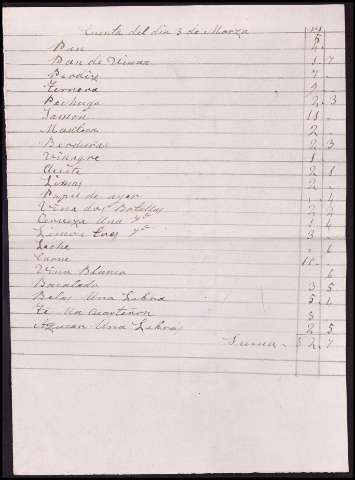 Cuenta del dia 3 de Marzo
Pan 2
Pan de 1 7
Perdiz 7
Ternera 2
Pechuga 2 3
Jamon 11
Manteca 2
Berduras 2 3
Vinagre 1
Aseite 2 1
2
Papel de ayer 1 4
Vino dos Botellas 2 2
Cerveza Una 1 4
3
Leche 6
Carne
Vino Blanco 6
Bacalado 3 5
Belas Una Libra 5 6
Te Un Cuarteron 3
Azucar Una Libra 2 5
Suma 7